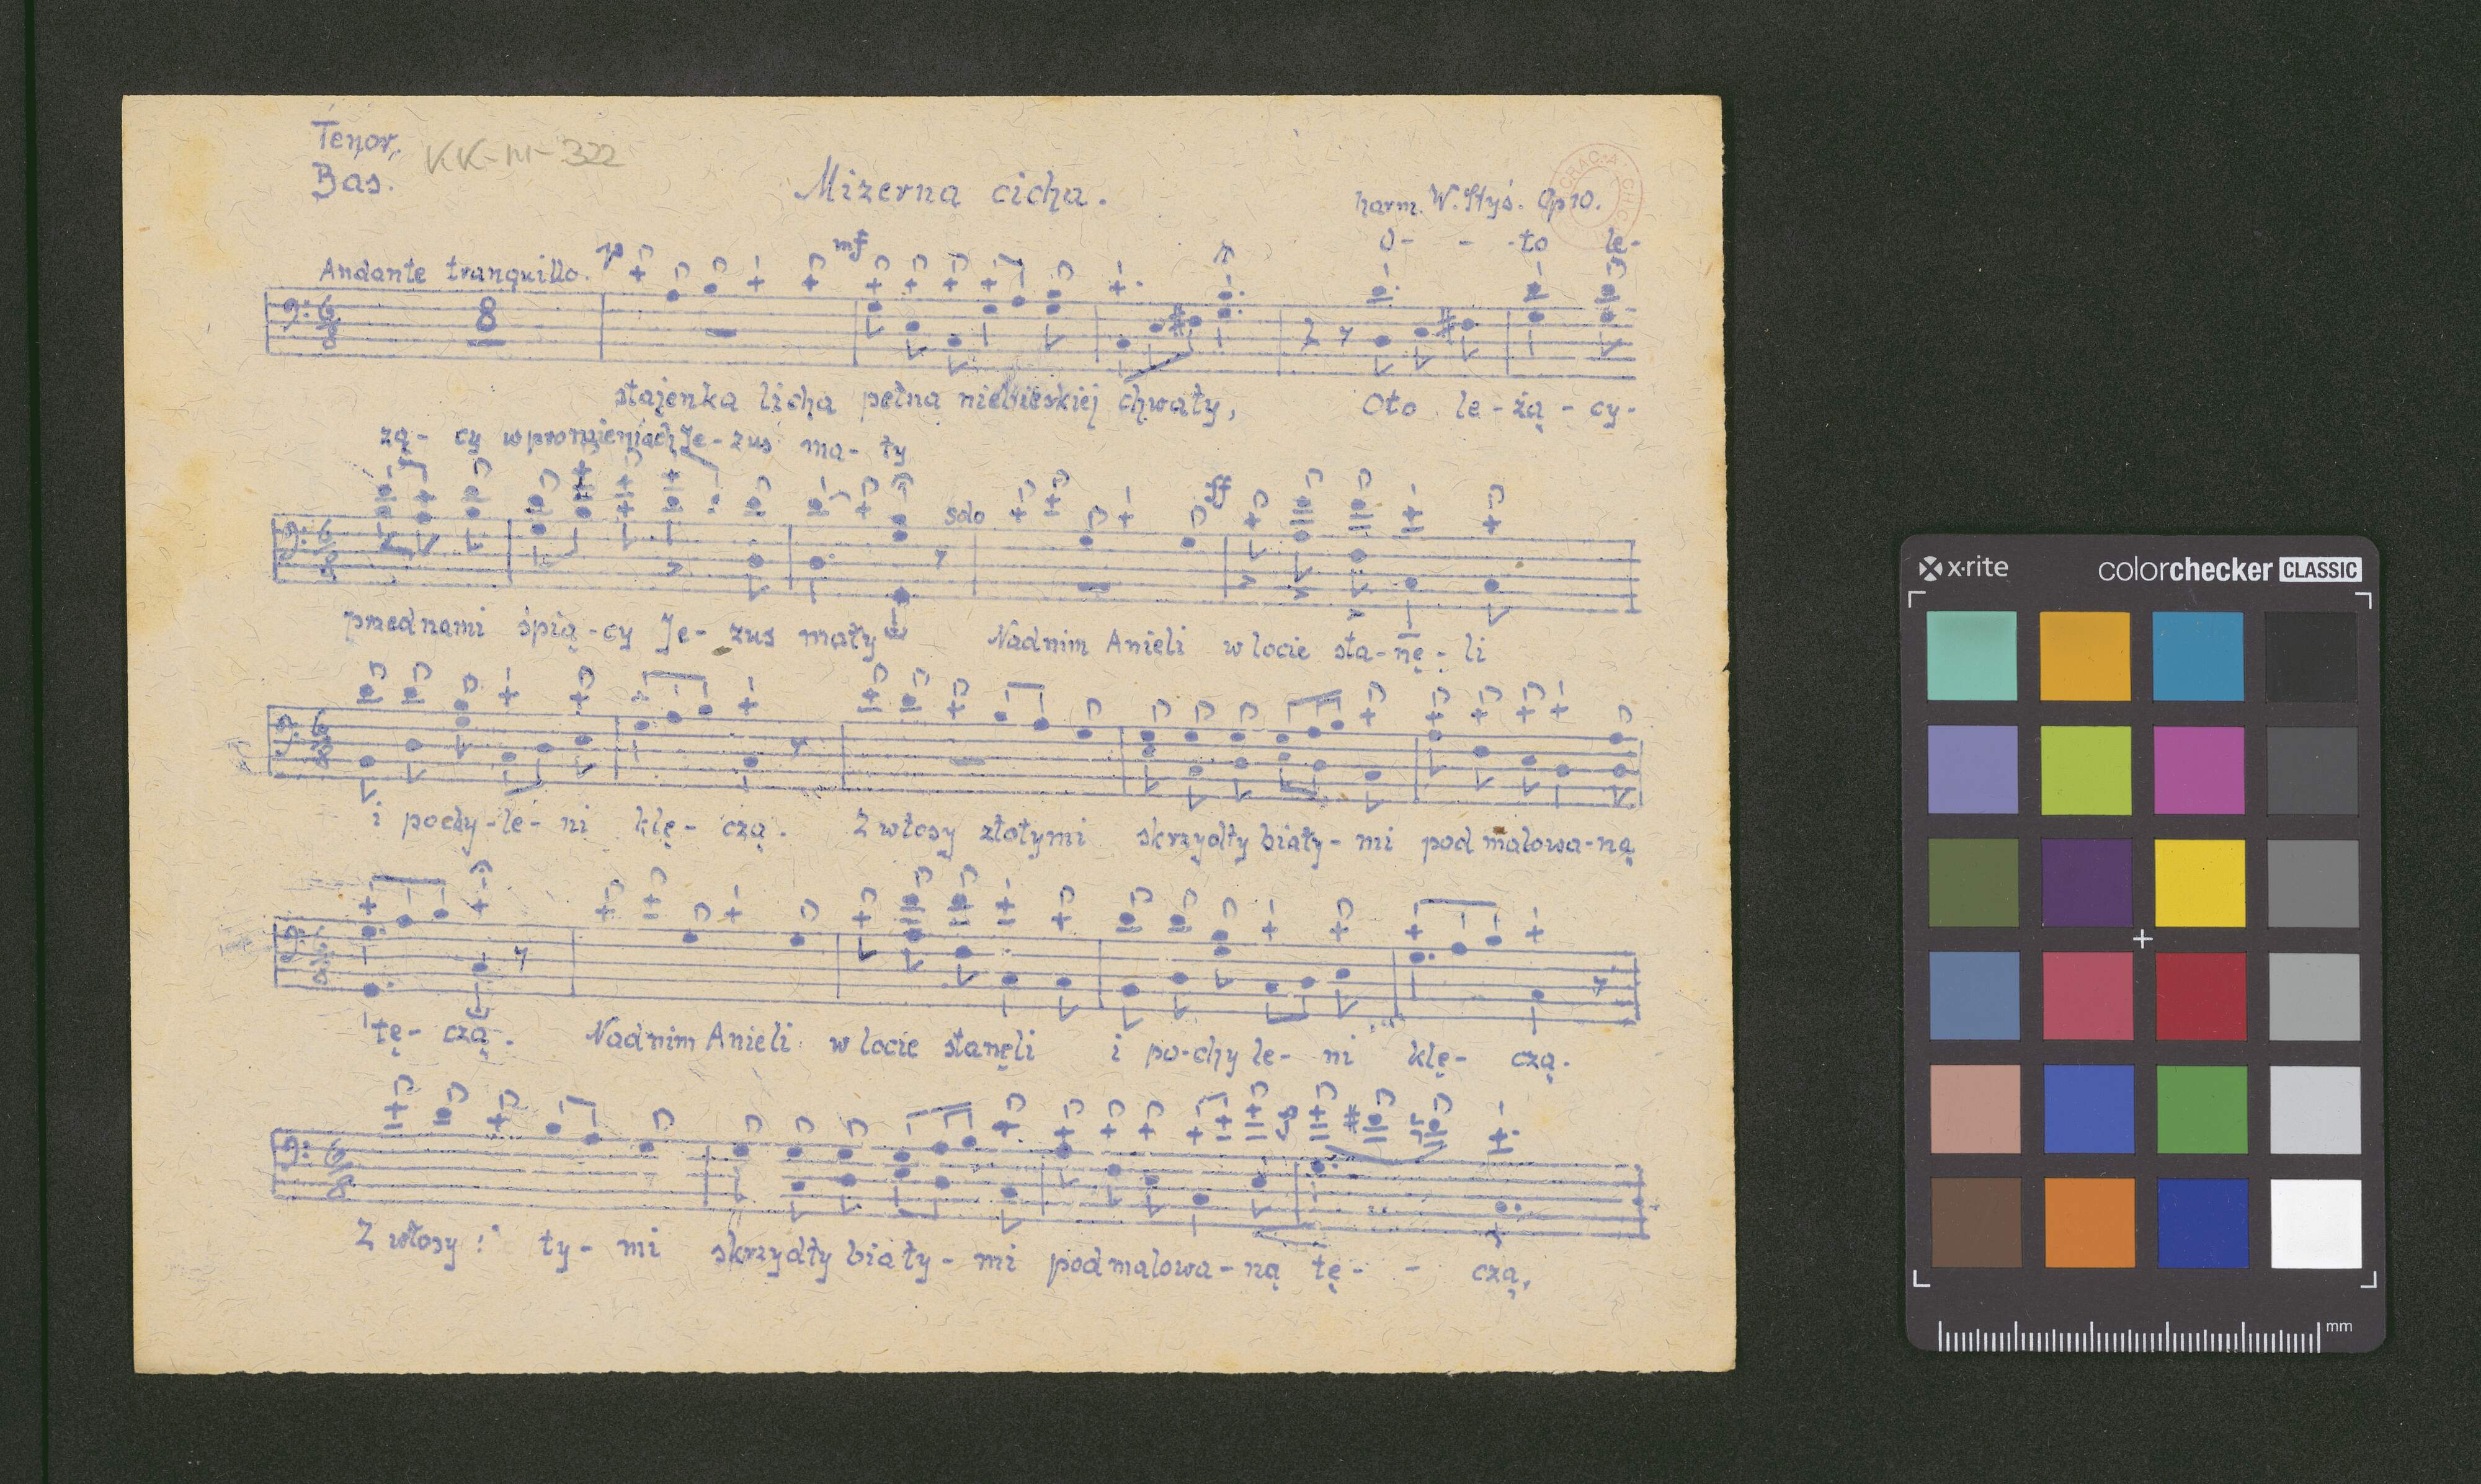 Tenor,
Bas.
KK-III-322
Mizerna cicha.
harm. W. Styś. Op 10.
O- - -to le-
Andante tranquillo. p mf
8
stajenka licha pełna niebieskiej chwały, Oto le-żą-cy-
żą- cy w promieniach Je-zus ma-ły
solo ff
przed nami śpią-cy Je-zus mały Nad nim Anieli w locie sta-nę-li
i pochy-le-ni klę-czą. Z włosy złotymi skrzydły biały-mi pod malowa-ną
tę-czą. Nad nim Anieli w locie stanęli i po-chy le-ni klę-czą.
Z włosy ty-mi skrzydły biały-mi pod malowa-ną tę- - czą.
x·rite
colorchecker CLASSIC
mm